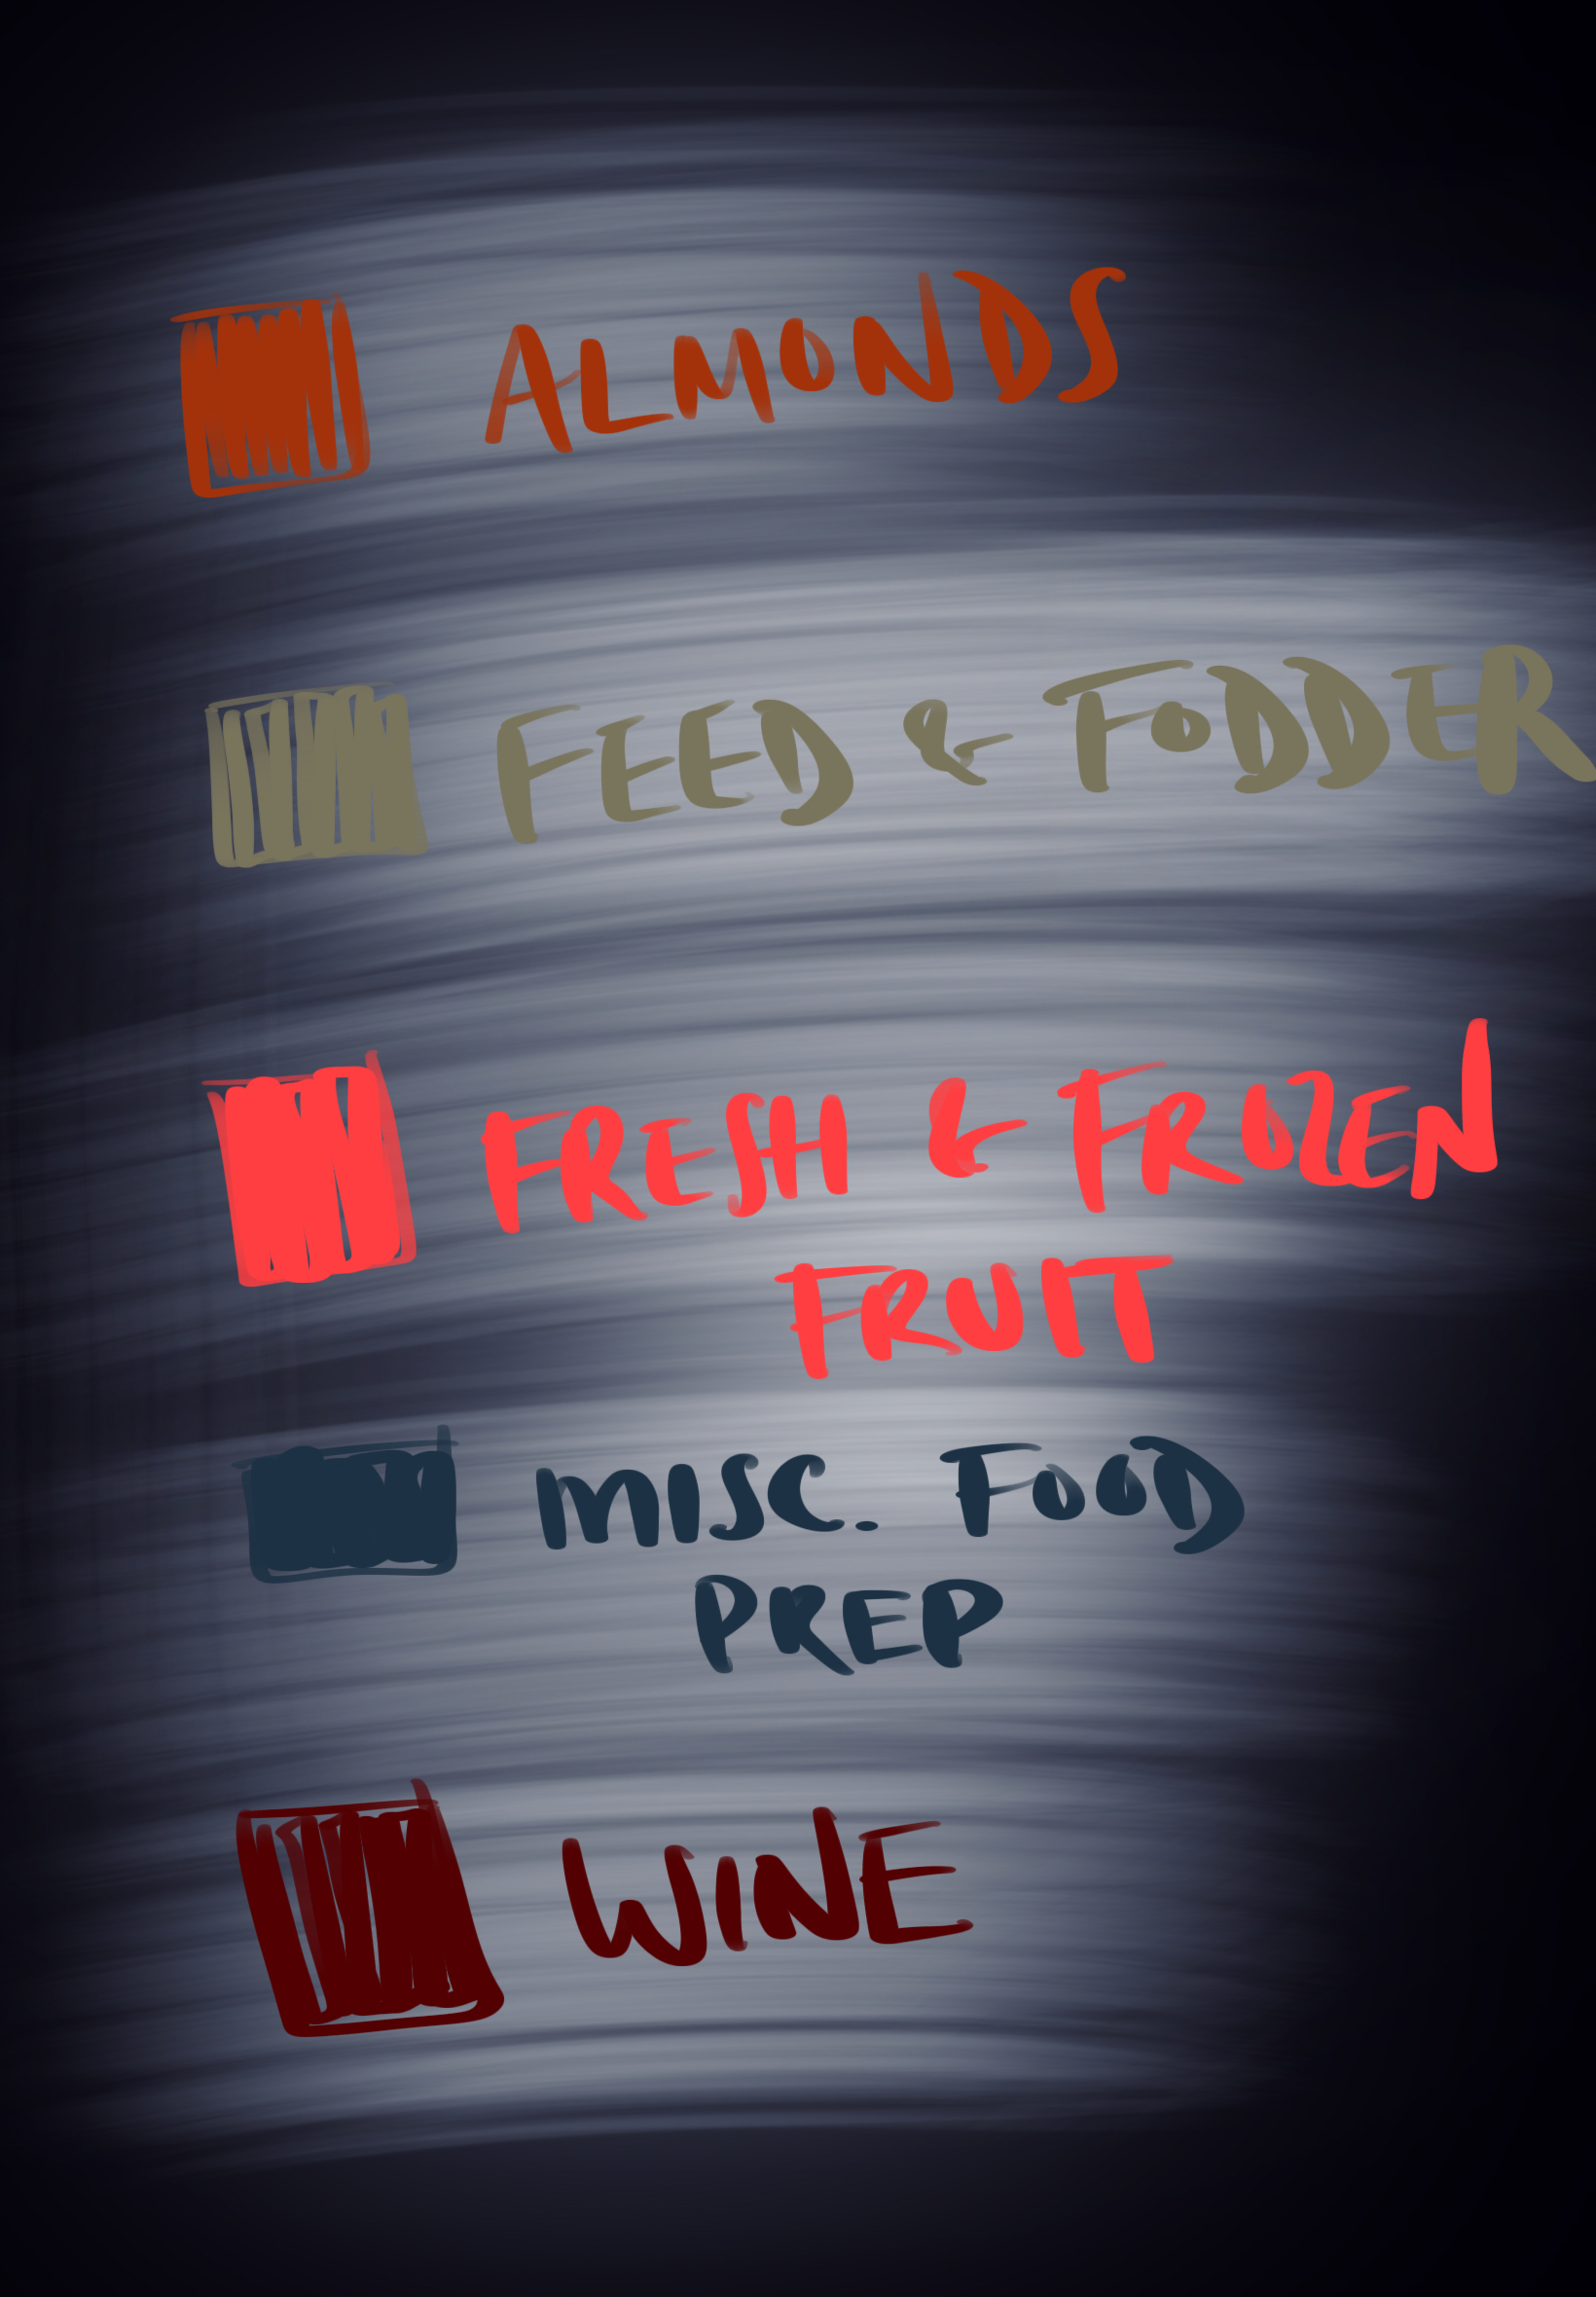 ALMONDS
FEED & FODDER
FRESH & FROZEN
FRUIT
MISC. FOOD
PREP
WINE